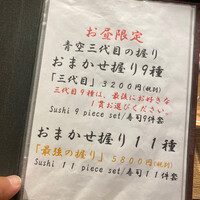 お昼限定
青空三代目の握り
おまかせ握り9種
「三代目」3200円(税別)
三代目9種は、最後にお好きな
1貫お選びください。
Sushi 9 piece set/寿司9件套
おまかせ握り11種
「最強の握り」3800円(税別)
Sushi 11 piece set/寿司11件套